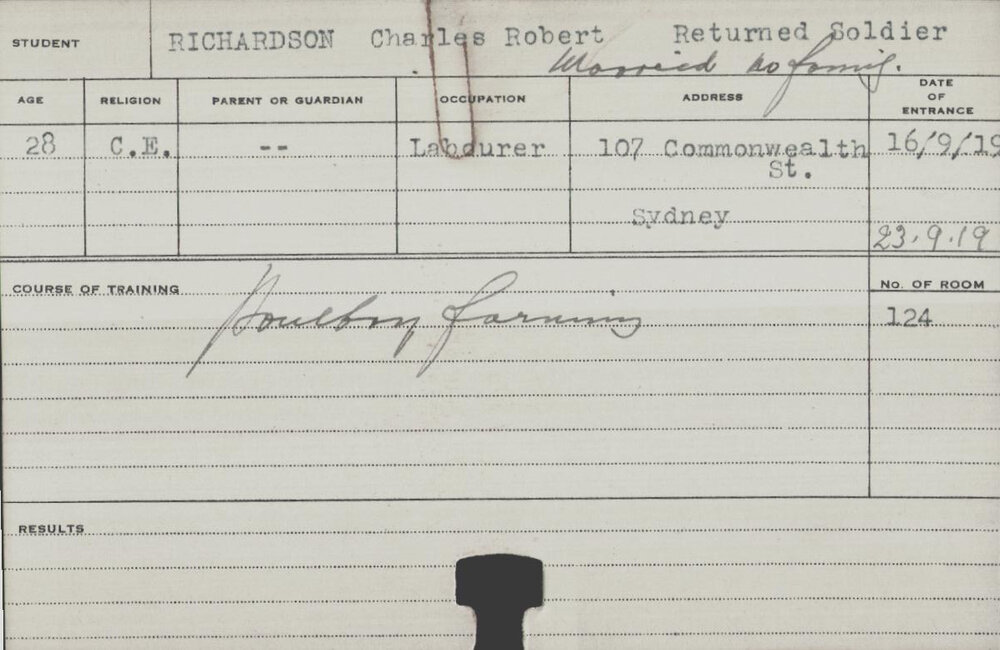 STUDENT RICHARDSON Charles Robert Returned Soldier
Married no family.
AGE RELIGION PARENT OR GUARDIAN OCCUPATION ADDRESS DATE OF ENTRANCE
28 C.E. -- Labourer 107 Commonwealth 16/9/19
St.
Sydney
23.9.19
COURSE OF TRAINING Poultry farming No. OF ROOM
124
RESULTS